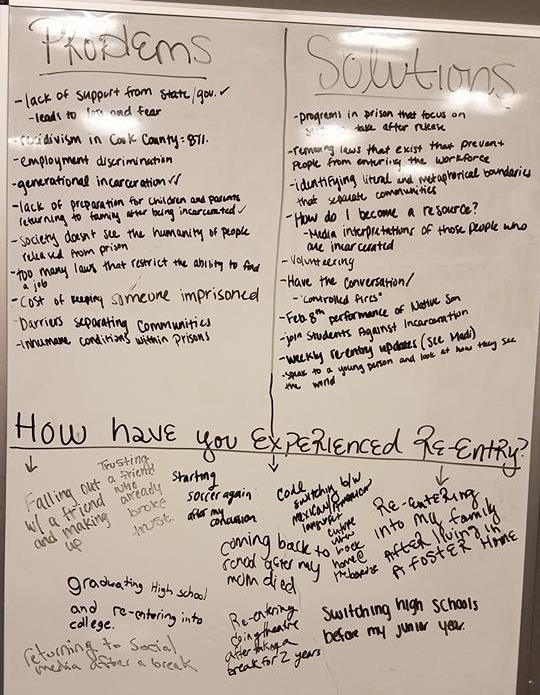 Problems
- lack of support from state/gov. ✓
- leads to loss and fear
- recidivism in Cook County: 87%.
- employment discrimination
- generational incarceration ✓✓
- lack of preparation for children and parents
returning to family after being incarcerated ✓
- Society doesn't see the humanity of people
released from prison
- too many laws that restrict the ability to find
a job
- Cost of keeping someone imprisoned
Barriers separating Communities
- Inhumane conditions within Prisons
Solutions
- programs in prison that focus on
to take after release
- removing laws that exist that prevent
people from entering the workforce
- identifying literal and metaphorical boundaries
that separate communities
- How do I become a resource?
- Media interpretations of those people who
are incarcerated
- Volunteering
- Have the Conversation/
- "Controlled fires"
- Feb 8th performance of Native Son
- join Students Against Incarceration
- weekly re-entry updates (see Madi)
- speak to a young person and look at how they see
the world
How have you Experienced Re-Entry?
Falling out
w/ a friend
and making
up
Trusting
a friend
who
already
broke
trust.
Starting
soccer again
after my
concussion
Code
switching b/w
Mexican/American
language
culture
when
back
home @
the border
RE-ENTERING
INTO MY FAMILY
AFTER LIVING IN
A FOSTER HOME
Coming back to
school after my
mom died
graduating High school
and re-entering into
college.
Re-entering
doing theatre
after taking a
break for 2 years
Switching high schools
before my junior year.
returning to Social
media after a break